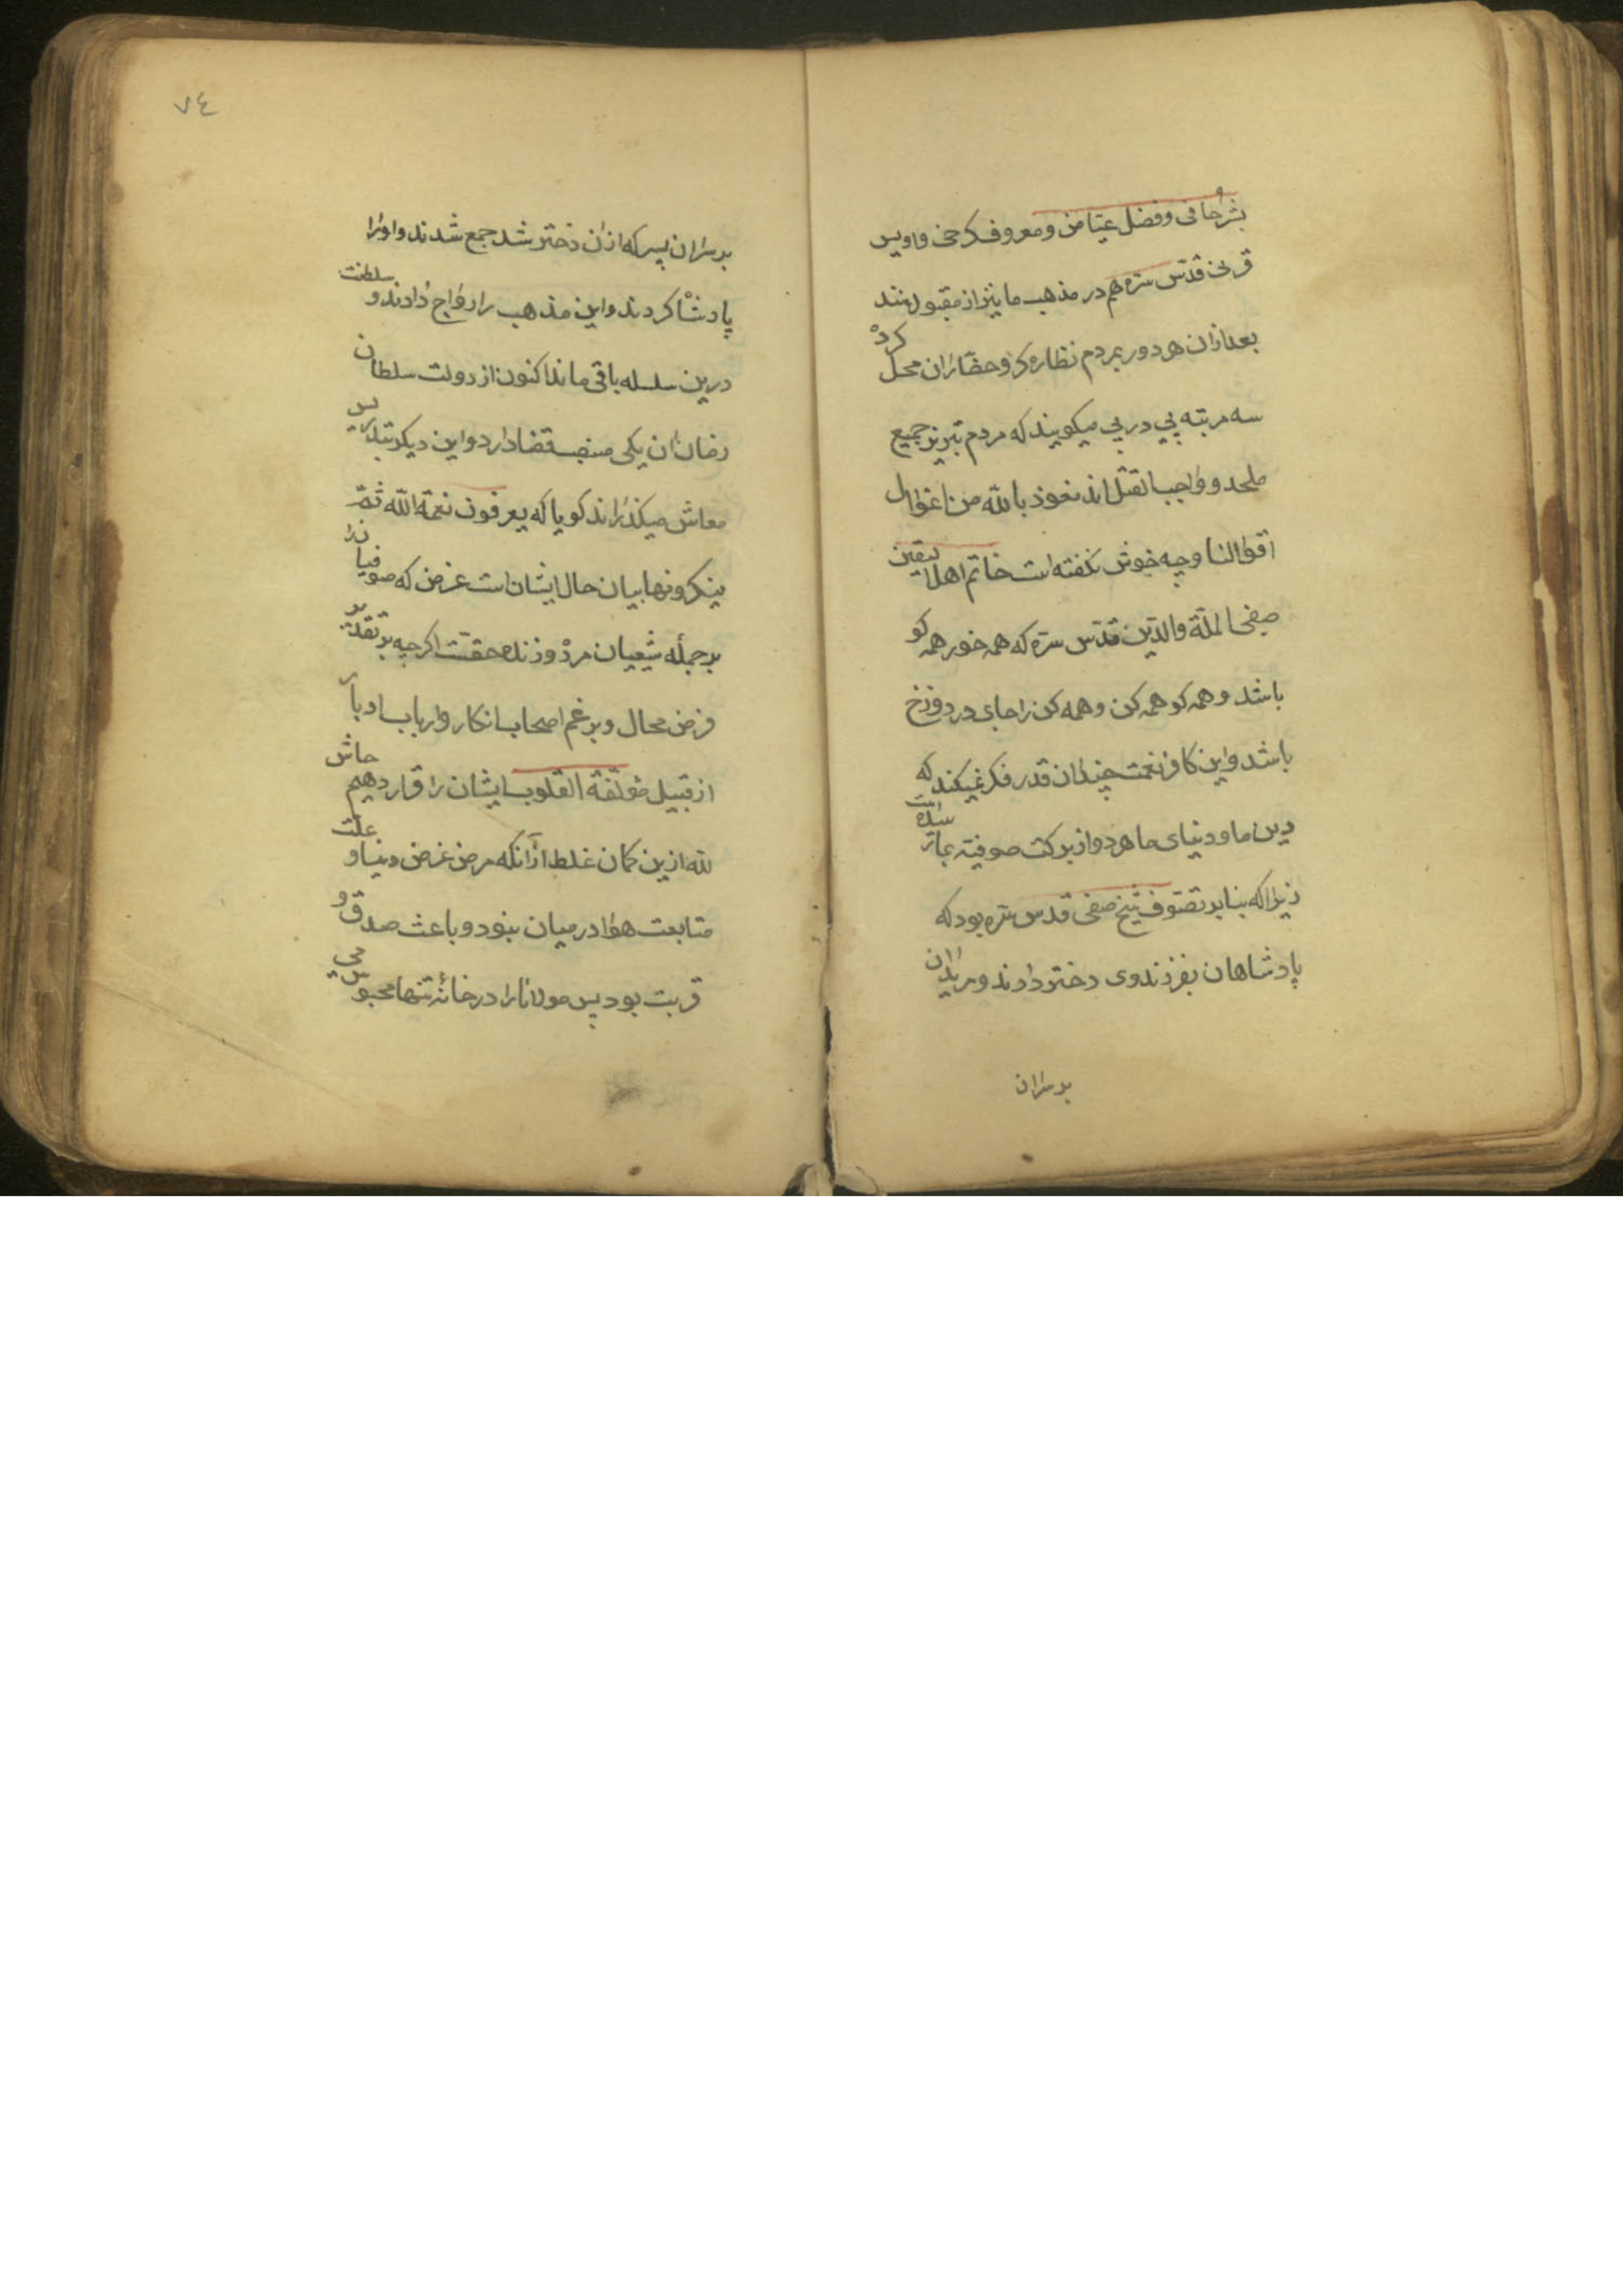 بشر حافی و فضل عیاض و معروف کرخی و اویس
قرنی قدّس سرّه هم در مذهب ما نیز از مقبولانند
بعد از آن هر دو ر بمردم نظاره کرد و حضّار ان محل کرد
سه مرتبه پی در پی میکویند که مردم تبریز جمیع
ملحد و واجب القتل اند نعوذ بالله من
و چه خوش نکفته است خاتم اهل الیقین
صفی الملّة والدّین قدّس سرّه که همه خور همه کو
باشد و همه کو همه کن و همه کن را جای در دوزخ
باشد و این کافر نعمت چندان قدر فکر نمیکند که
دین ما و دنیای ما هر دو از برکت صوفیه است
زیرا که بنا بر تصوّف شیخ صفی قدس سره بود که
پادشاهان بفرزند وی دختر دادند و مریدان
بر سر ان
٧٤
بر سر ان پسر که از ان دختر شد جمع شدند و اورا
پادشا کردند و این مذهب را رواج دادند و سلطنت
درین سلسله باقی ماند اکنون از دولت سلطان
ان یکی منصب قضا دارد و این دیکر بتدریس
معاش میکذراند کویا که یعرفون نعمة الله ثمّ
ینکرونها بیان حال ایشان است غرض که صوفیانرا
بر جمله شیعیان مرده و زنده حقّست اکرچه بر تقدیر
فرض محال و بر غم اصحاب انکار و ارباب ادبار
از قبیل مؤلّفة القلوب ایشان را قرار دهیم حاش
لله ازین کمان غلط از انکه مرض غرض دنیا و علّت
متابعت هوا در میان نبود و باعث صدق و
قربت بود پس مولانا را در خانهٔ تنها محبوس می